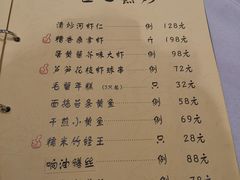 清炒河虾仁 例 128元
糟香条拿虾 斤 198元
蛋黄蟹芥味大虾 例 98元
芦笋花枝虾球串 例 72元
毛蟹年糕 (3只起) 只 32元
面拖苔条黄鱼 例 58元
干煎小黄鱼 例 69元
糯米竹蛏王 只 28元
响油鳝丝 例 88元
78元